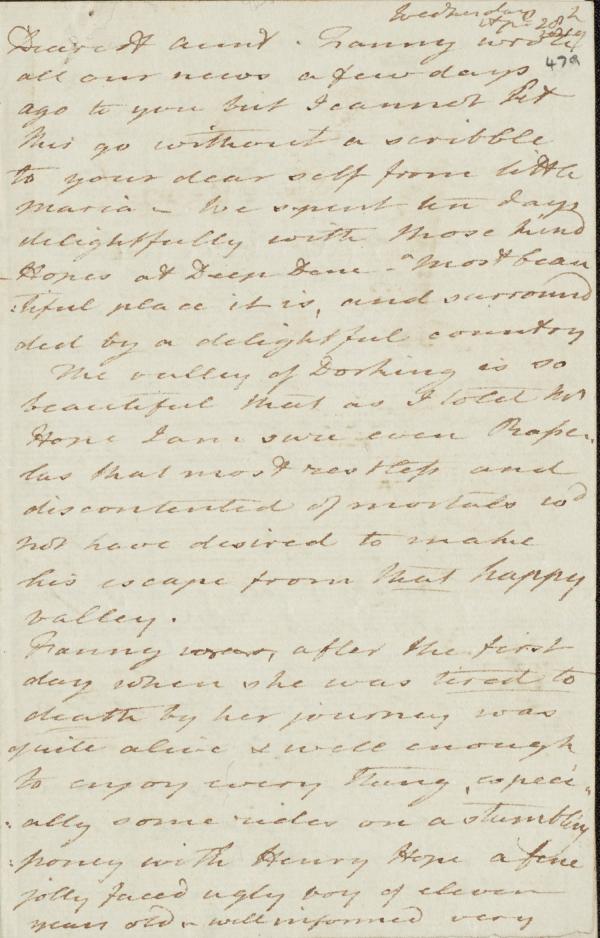 Wednesday
Ap. 28th
1819
479
Dearest Aunt. Fanny wrote
all our news a few days
ago to you but I cannot let
this go without a scribble
to your dear self from little
Maria - We spent ten days
delightfully with those kind
Hopes at Deep Dene - a most beau
:tiful place it is, and surround
ded by a delightful country
The valley of Dorking is so
beautiful that as I told Mr
Hope I am sure even Rasse-
las that most restless and
discontented of mortals wd
not have desired to make
his escape from that happy
valley.
Fanny was, after the first
day when she was tired to
death by her journey was
quite alive & well enough
to enjoy every thing, especi-
:ally some rides on a stumbling
:poney with Henry Hope a fine
jolly faced ugly boy of eleven
years old - well informed very